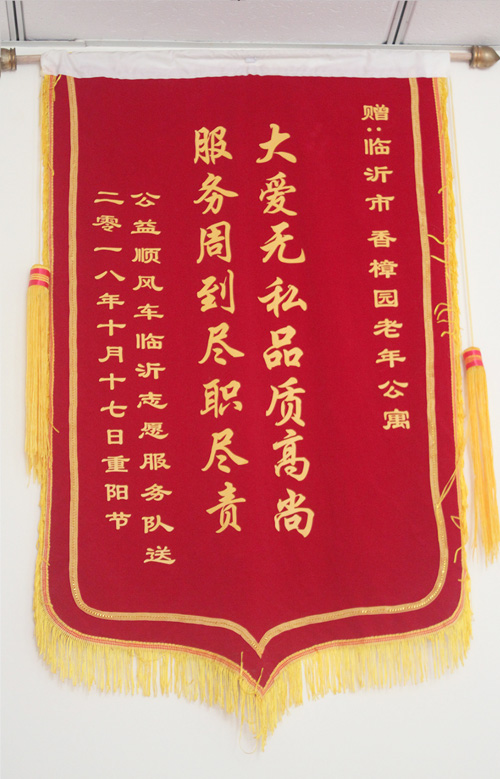 赠:临沂市香樟园老年公寓
大爱无私品质高尚
服务周到尽职尽责
公益顺风车临沂志愿服务队送
二零一八年十月十七日重阳节